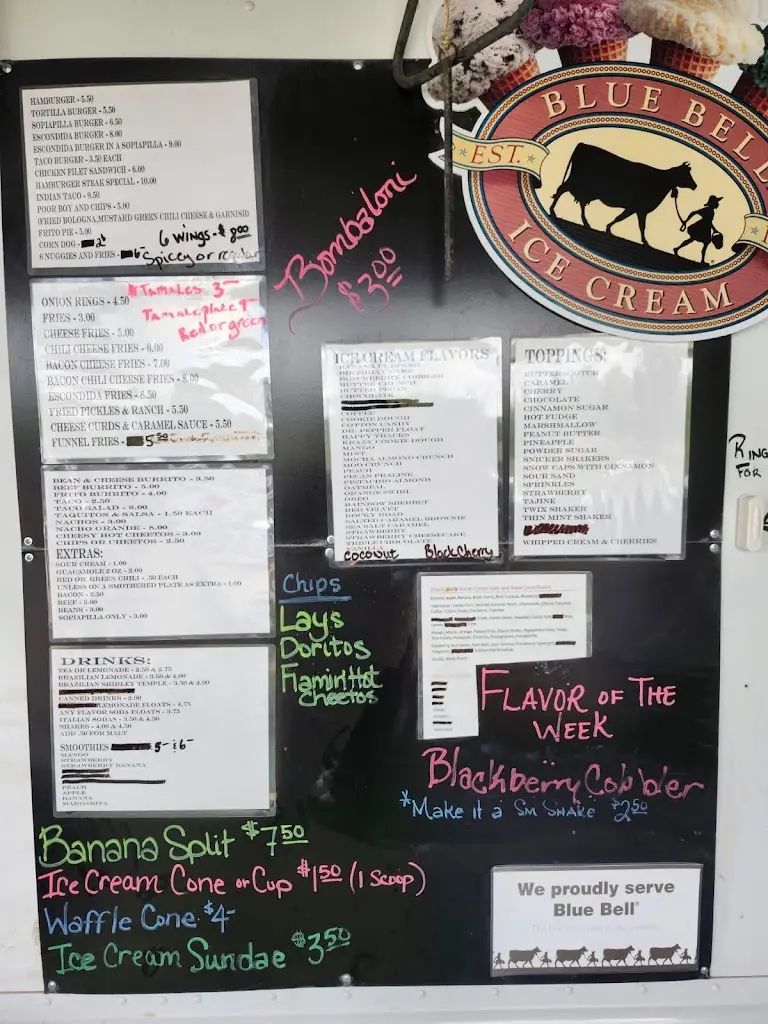 HAMBURGER - 5.50
TORTILLA BURGER - 5.50
SOPIAPILLA BURGER - 6.50
ESCONDIDA BURGER - 8.00
ESCONDIDA BURGER IN A SOPIAPILLA - 9.00
TACO BURGER - 3.50 EACH
CHICKEN FILET SANDWICH - 6.00
HAMBURGER STEAK SPECIAL - 10.00
INDIAN TACO - 9.50
POOR BOY AND CHIPS - 5.00
(FRIED BOLOGNA,MUSTARD GREEN CHILI CHEESE & GARNISH)
FRITO PIE - 5.00
CORN DOG -
6 NUGGIES AND FRIES -
6 WINGS - $8.00
Spicy or regular
ONION RINGS - 4.50
FRIES - 3.00
CHEESE FRIES - 5.00
CHILI CHEESE FRIES - 6.00
BACON CHEESE FRIES - 7.00
BACON CHILI CHEESE FRIES - 8.00
ESCONDIDA FRIES - 8.50
FRIED PICKLES & RANCH - 5.50
CHEESE CURDS & CARAMEL SAUCE - 5.50
FUNNEL FRIES - 5.50
* Tamales 3-
Tamale plate 7-
Red or green
BEAN & CHEESE BURRITO - 3.50
BEEF BURRITO - 5.00
FRITO BURRITO - 4.00
TACO - 2.50
TACO SALAD - 8.00
TAQUITOS & SALSA - 1.50 EACH
NACHOS - 3.00
NACHO GRANDE - 8.00
CHEESY HOT CHEETOS - 3.00
CHIPS OR CHEETOS - 2.50
EXTRAS:
SOUR CREAM - 1.00
GUACAMOLE 2 OZ - 2.00
RED OR GREEN CHILI - .50 EACH
UNLESS ON A SMOTHERED PLATE AS EXTRA - 1.00
BACON - 2.50
BEEF - 2.00
BEANS - 3.00
SOPIAPILLA ONLY - 3.00
DRINKS:
TEA OR LEMONADE - 2.50 & 2.75
BRAZILIAN LEMONADE - 3.50 & 4.00
BRAZILIAN SHIRLEY TEMPLE - 3.50 & 4.00
CANNED DRINKS - 2.00
LEMONADE FLOATS - 4.75
ANY FLAVOR SODA FLOATS - 3.75
ITALIAN SODAS - 3.50 & 4.50
SHAKES - 4.00 & 4.50
ADD .50 FOR MALT
SMOOTHIES 5- & 6-
MANGO
STRAWBERRY
STRAWBERRY BANANA
PEACH
APPLE
BANANA
MARGARITA
Bombaloni
$3.00
BLUE BELL
EST.
ICE CREAM
ICE CREAM FLAVORS
BANANA PUDDING
BIRTHDAY CAKE
BLACKBERRY COBBLER
BUTTER CRUNCH
BUTTER PECAN
CHOCOLATE
COFFEE
COOKIE DOUGH
COTTON CANDY
DR. PEPPER FLOAT
HAPPY TRACKS
KRAZY COOKIE DOUGH
MANGO
MINT
MOCHA ALMOND CRUNCH
MOO CRUNCH
PEACH
PECAN PRALINE
PISTACHIO ALMOND
OATMEAL
ORANGE SWIRL
OREO
RAINBOW SHERBET
RED VELVET
ROCKY ROAD
SALTED CARAMEL BROWNIE
SEA SALT CARAMEL
STRAWBERRY
STRAWBERRY CHEESECAKE
TRIPLE CHOCOLATE
VANILLA
Coconut Black Cherry
TOPPINGS:
BUTTERSCOTCH
CARAMEL
CHERRY
CHOCOLATE
CINNAMON SUGAR
HOT FUDGE
MARSHMALLOW
PEANUT BUTTER
PINEAPPLE
POWDER SUGAR
SNICKER SHAKERS
SNOW CAPS WITH CINNAMON
SOUR SAND
SPRINKLES
STRAWBERRY
TAJINE
TWIX SHAKER
THIN MINT SHAKER
WHIPPED CREAM & CHERRIES
RING
FOR
Chips
Lays
Doritos
Flamin Hot
Cheetos
FLAVOR OF THE
WEEK
Blackberry Cobbler
*Make it a Sm SHAKE $2.50
Banana Split $7.50
Ice Cream Cone or Cup $1.50 (1 Scoop)
Waffle Cone $4-
Ice Cream Sundae $3.50
We proudly serve
Blue Bell®